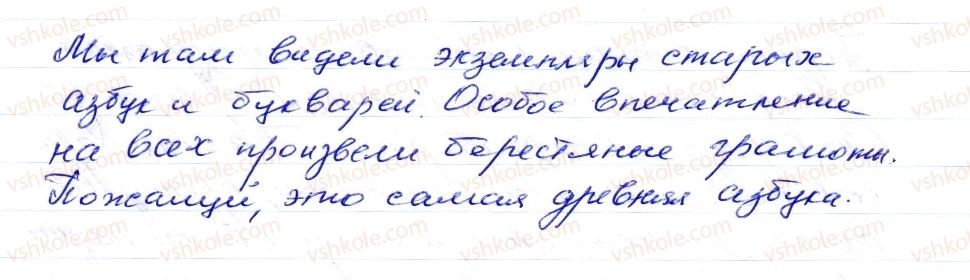 Мы там видели экземпляры старых
азбук и букварей. Особое впечатление
на всех произвели берестяные грамоты.
Пожалуй, это самая древняя азбука.